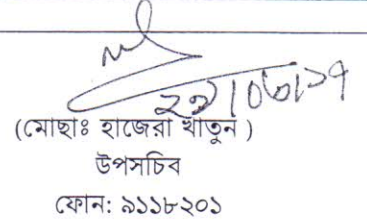 ২৯/০৬/১৭
(মোছাঃ হাজেরা খাতুন )
উপসচিব
ফোন: ৯১১৮২০১